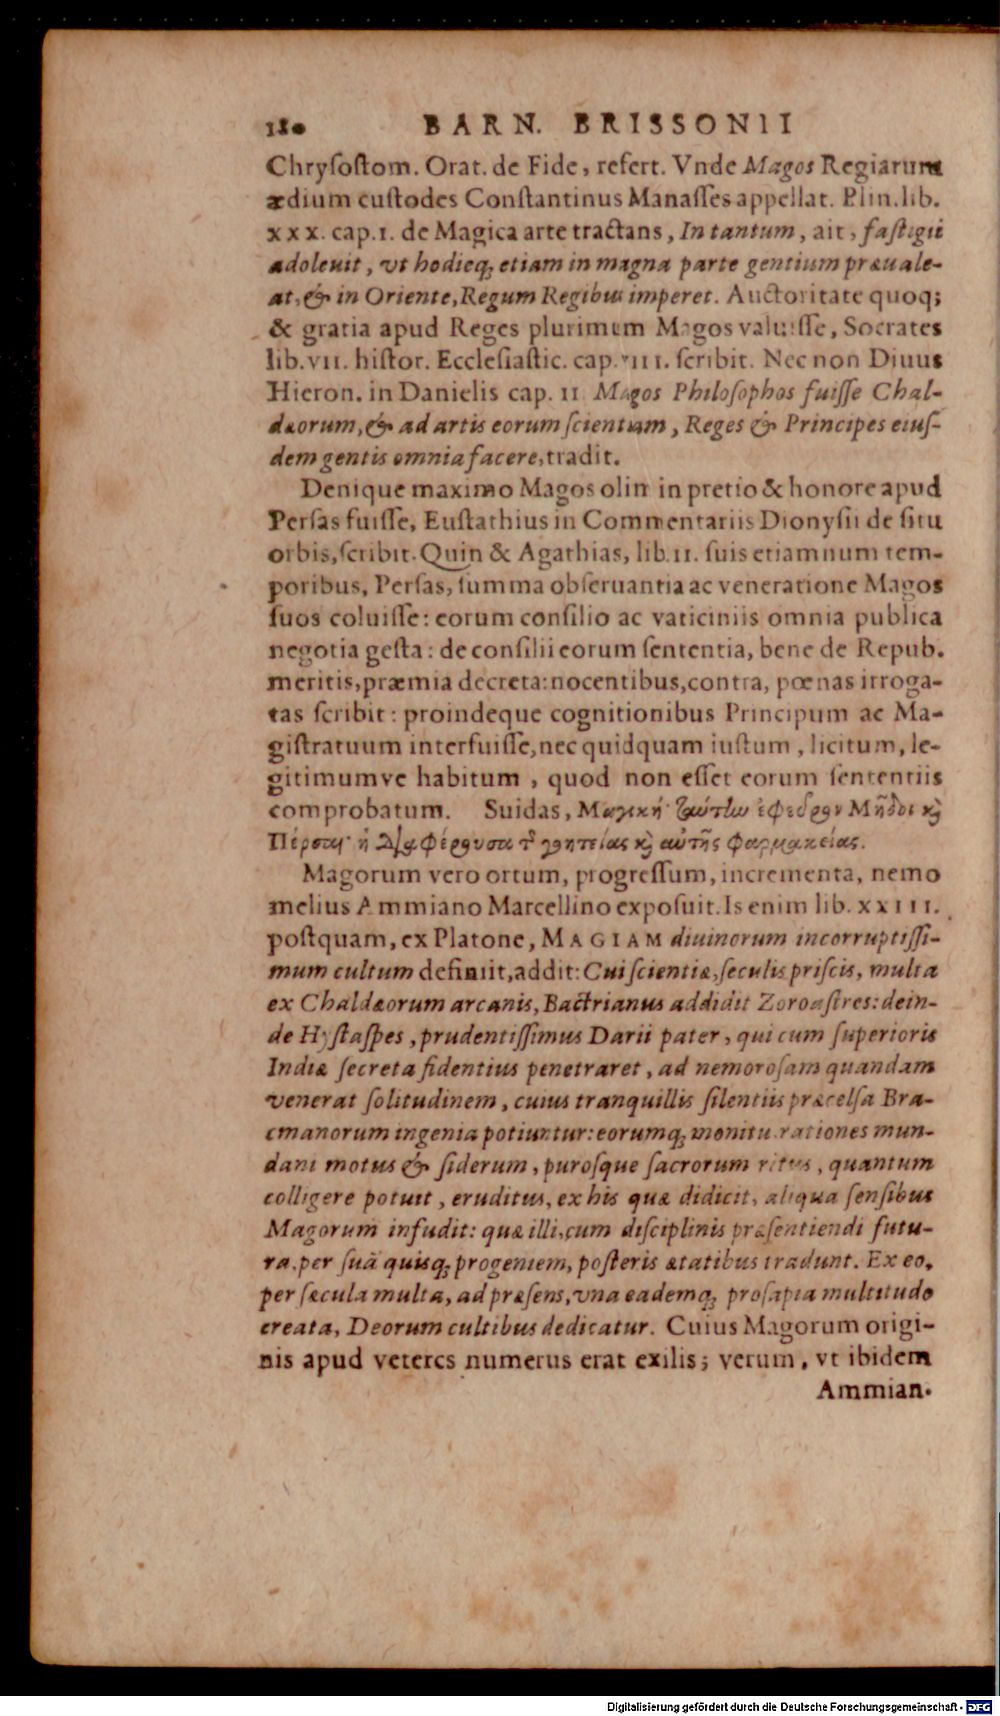 180 BARN. BRISSONII
Chryſoſtom. Orat. de Fide, refert. Vnde Magos Regiarum
ædium cuſtodes Conſtantinus Manaſſes appellat. Plin. lib.
xxx. cap. 1. de Magica arte tractans, In tantum, ait, faſtigii
adoleuit, vt hodieq; etiam in magna parte gentium præuale-
at, & in Oriente, Regum Regibus imperet. Auctoritate quoq;
& gratia apud Reges plurimum Magos valuiſſe, Socrates
lib. vii. hiſtor. Eccleſiaſtic. cap. viii. ſcribit. Nec non Diuus
Hieron. in Danielis cap. ii Magos Philoſophos fuiſſe Chal-
dæorum, & ad artis eorum ſcientiam, Reges & Principes eiuſ-
dem gentis omnia facere, tradit.
Denique maximo Magos olim in pretio & honore apud
Perſas fuiſſe, Euſtathius in Commentariis Dionyſii de ſitu
orbis, ſcribit. Quin & Agathias, lib. ii. ſuis etiamnum tem-
poribus, Perſas, ſumma obſeruantia ac veneratione Magos
ſuos coluiſſe: eorum conſilio ac vaticiniis omnia publica
negotia geſta: de conſilii eorum ſententia, bene de Repub.
meritis, præmia decreta: nocentibus, contra, pœnas irroga-
tas ſcribit: proindeque cognitionibus Principum ac Ma-
giſtratuum interfuiſſe, nec quidquam iuſtum, licitum, le-
gitimumve habitum, quod non eſſet eorum ſententiis
comprobatum. Suidas, Μαγική· ταύτην ἐφεῦρον Μῆδοι κὶ
Πέρσαι· ἡ διαφέρουσα τ̃ γοητείας κὶ αὐτῆς φαρμακείας.
Magorum vero ortum, progreſſum, incrementa, nemo
melius Ammiano Marcellino expoſuit. Is enim lib. xxiii.
poſtquam, ex Platone, MAGIAM diuinorum incorruptiſſi-
mum cultum definiit, addit: Cui ſcientiæ, ſeculis priſcis, multa
ex Chaldæorum arcanis, Bactrianus addidit Zoroaſtres: dein-
de Hyſtaſpes, prudentiſſimus Darii pater, qui cum ſuperioris
Indiæ ſecreta fidentius penetraret, ad nemoroſam quandam
venerat ſolitudinem, cuius tranquillis ſilentiis præcelſa Bra-
cmanorum ingenia potiuntur: eorumq; monitu rationes mun-
dani motus & ſiderum, puroſque ſacrorum ritus, quantum
colligere potuit, eruditus, ex his quæ didicit, aliqua ſenſibus
Magorum infudit: quæ illi, cum diſciplinis præſentiendi futu-
ra, per ſuã quisq; progeniem, poſteris ætatibus tradunt. Ex eo,
per ſæcula multa, ad præſens, vna eademq; proſapia multitudo
creata, Deorum cultibus dedicatur. Cuius Magorum origi-
nis apud veteres numerus erat exilis; verum, vt ibidem
Ammian.
Digitalisierung gefördert durch die Deutsche Forschungsgemeinschaft - DFG